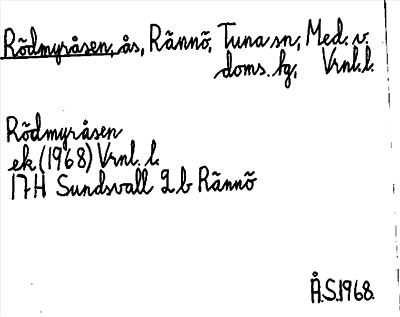 Rödmyråsen, ås, Rännö, Tuna sn, Med. v.
doms. hg, Vrnl. l.
Rödmyråsen
ek (1968) Vrnl. l.
17H Sundsvall 2b Rännö
Å.S.1968.